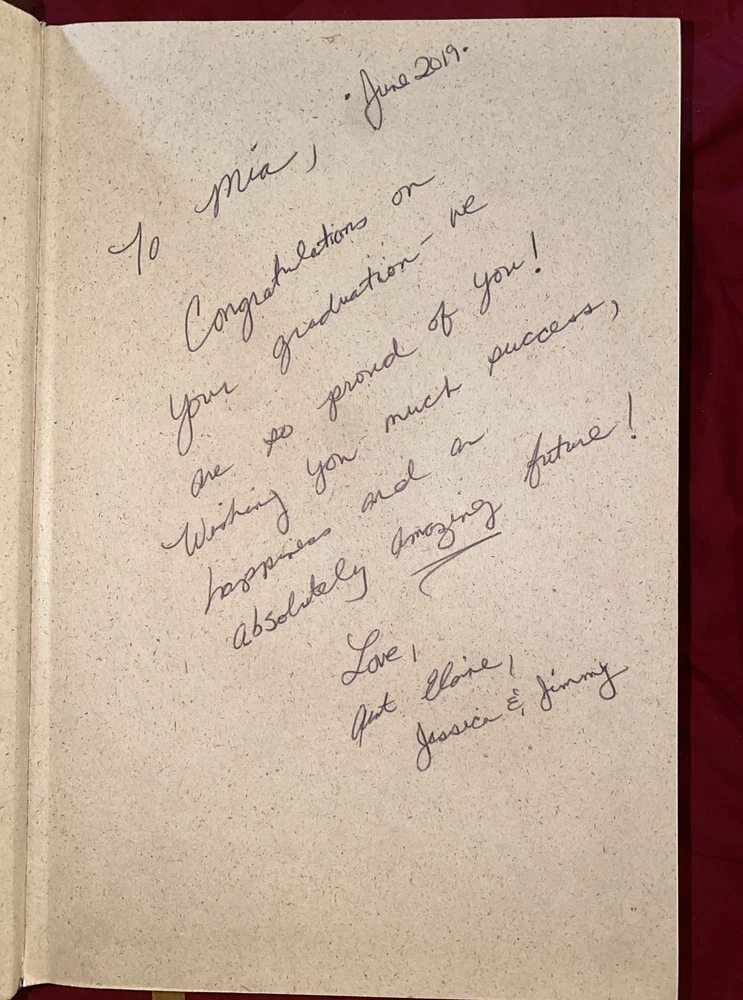 · June 2019 ·
To Mia,
Congratulations on
your graduation - we
are so proud of you!
Wishing you much success,
happiness and an
absolutely amazing future!
Love,
Aunt Elaine,
Jessica & Jimmy